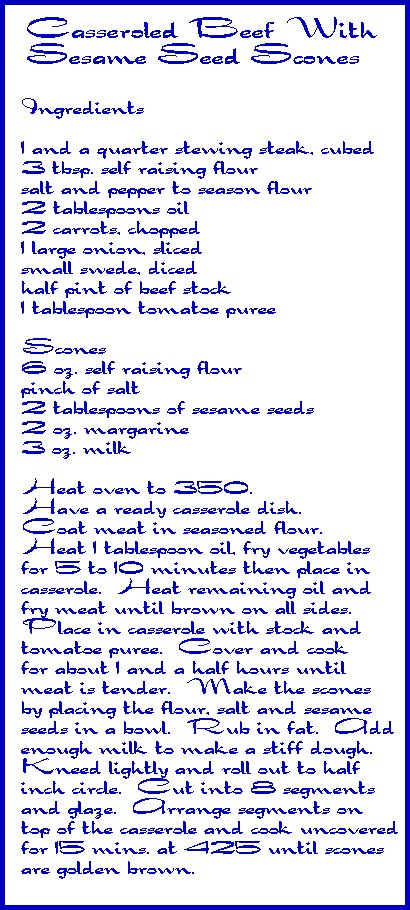 Casseroled Beef With
Sesame Seed Scones
Ingredients
1 and a quarter stewing steak, cubed
3 tbsp. self raising flour
salt and pepper to season flour
2 tablespoons oil
2 carrots, chopped
1 large onion, sliced
small swede, diced
half pint of beef stock
1 tablespoon tomatoe puree
Scones
6 oz. self raising flour
pinch of salt
2 tablespoons of sesame seeds
2 oz. margarine
3 oz. milk
Heat oven to 350.
Have a ready casserole dish.
Coat meat in seasoned flour.
Heat 1 tablespoon oil, fry vegetables
for 5 to 10 minutes then place in
casserole. Heat remaining oil and
fry meat until brown on all sides.
Place in casserole with stock and
tomatoe puree. Cover and cook
for about 1 and a half hours until
meat is tender. Make the scones
by placing the flour, salt and sesame
seeds in a bowl. Rub in fat. Add
enough milk to make a stiff dough.
Kneed lightly and roll out to half
inch circle. Cut into 8 segments
and glaze. Arrange segments on
top of the casserole and cook uncovered
for 15 mins. at 425 until scones
are golden brown.